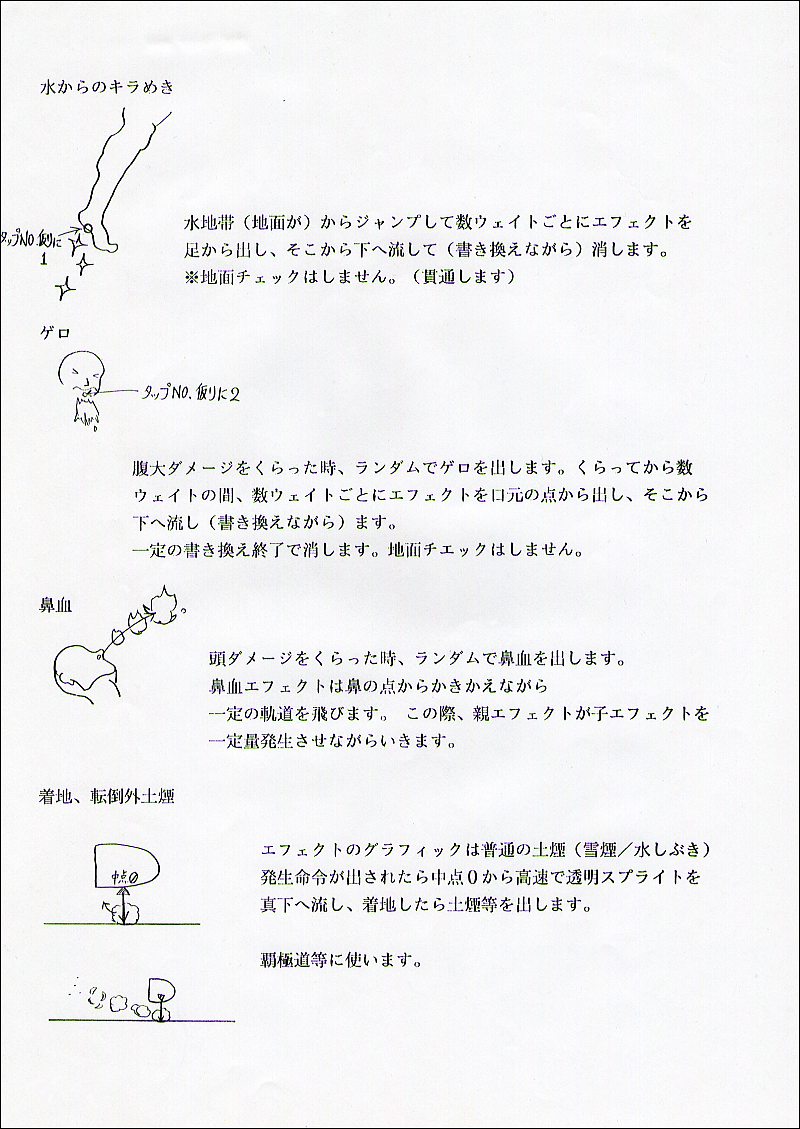 水からのキラめき
タップNO.仮りに
1
水地帯（地面が）からジャンプして数ウェイトごとにエフェクトを
足から出し、そこから下へ流して（書き換えながら）消します。
※地面チェックはしません。（貫通します）
ゲロ
タップNO.仮りに2
腹大ダメージをくらった時、ランダムでゲロを出します。くらってから数
ウェイトの間、数ウェイトごとにエフェクトを口元の点から出し、そこから
下へ流し（書き換えながら）ます。
一定の書き換え終了で消します。地面チエックはしません。
鼻血
頭ダメージをくらった時、ランダムで鼻血を出します。
鼻血エフェクトは鼻の点からかきかえながら
一定の軌道を飛びます。 この際、親エフェクトが子エフェクトを
一定量発生させながらいきます。
着地、転倒外土煙
中点0
エフェクトのグラフィックは普通の土煙（雪煙／水しぶき）
発生命令が出されたら中点０から高速で透明スプライトを
真下へ流し、着地したら土煙等を出します。
覇極道等に使います。